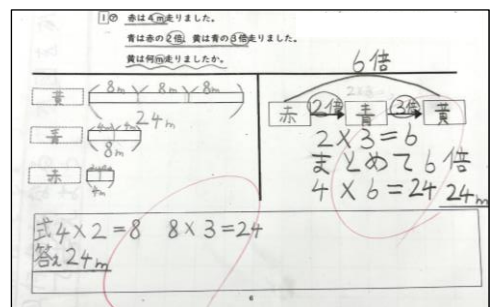 1 ㋐ 赤は4m走りました。
青は赤の2倍、黄は青の3倍走りました。
黄は何m走りましたか。
6倍
黄 8m 8m 8m
24m
青 4m 4m
8m
赤
4m
赤 2倍 青 3倍 黄
2×3=6
まとめて6倍
4×6=24 24m
式 4×2=8 8×3=24
答え24m
6